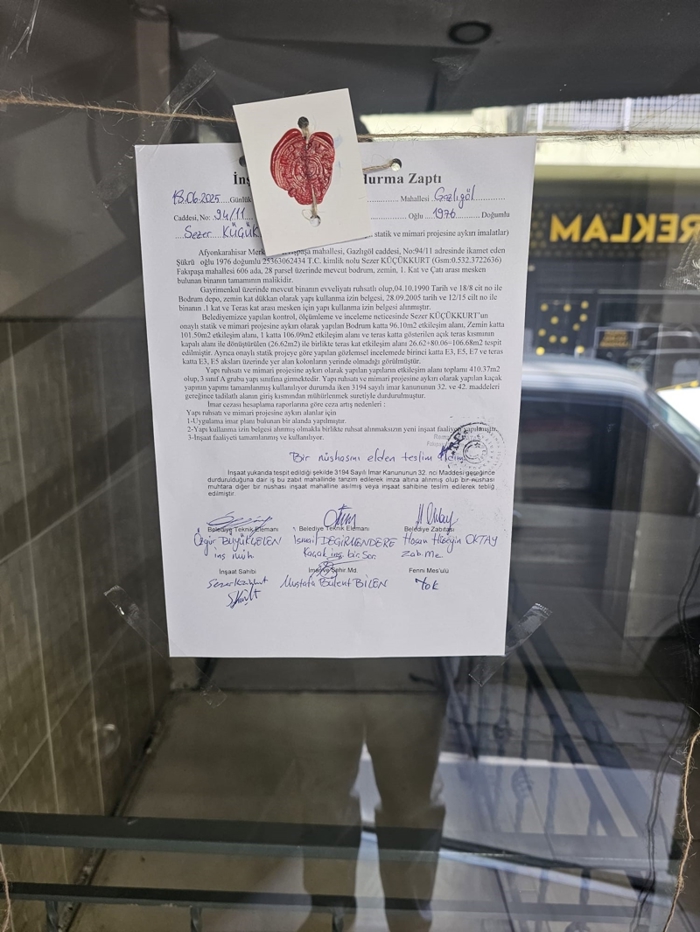 REKLAM
İnş durma Zaptı
18.06.2025 Günlük Mahallesi Gazlıgöl
Caddesi, No: 94/11 Oğlu 1976 Doğumlu
Sezer KÜÇÜK statik ve mimari projesine aykırı imalatlar)
Afyonkarahisar Merk paşa mahallesi, Gazlıgöl caddesi, No:94/11 adresinde ikamet eden
Şükrü oğlu 1976 doğumlu 25363062434 T.C. kimlik nolu Sezer KÜÇÜKKURT (Gsm:0.532.3722636)
Fakıpaşa mahallesi 606 ada, 28 parsel üzerinde mevcut bodrum, zemin, 1. Kat ve Çatı arası mesken
bulunan binanın tamamının malikidir.
Gayrimenkul üzerinde mevcut binanın evveliyatı ruhsatlı olup,04.10.1990 Tarih ve 18/8 cit no ile
Bodrum depo, zemin kat dükkan olarak yapı kullanma izin belgesi, 28.09.2005 tarih ve 12/15 cilt no ile
binanın .1 kat ve Teras kat arası mesken için yapı kullanma izin belgesi alınmıştır.
Belediyemizce yapılan kontrol, ölçümleme ve inceleme neticesinde Sezer KÜÇÜKKURT'un
onaylı statik ve mimari projesine aykırı olarak yapılan Bodrum katta 96.10m2 etkileşim alanı, Zemin katta
101.50m2 etkileşim alanı, 1 katta 106.09m2 etkileşim alanı ve teras katta gösterilen açık teras kısmının
kapalı alanı ile dönüştürülen (26.62m2) ile birlikte teras kat etkileşim alanı 26.62+80.06=106.68m2 tespit
edilmiştir. Ayrıca onaylı statik projeye göre yapılan gözlemsel incelemede birinci katta E3, E5, E7 ve teras
katta E3, E5 aksları üzerinde yer alan kolonların yerinde olmadığı görülmüştür.
Yapı ruhsatı ve mimari projesine aykırı olarak yapılan yapıların etkileşim alanı toplamı 410.37m2
olup, 3 sınıf A grubu yapı sınıfına girmektedir. Yapı ruhsatı ve mimari projesine aykırı olarak yapılan kaçak
yapının yapımı tamamlanmış kullanılıyor durumda iken 3194 sayılı imar kanununun 32. ve 42. maddeleri
gereğince tadilatlı alanın giriş kısmından mühürlenmek suretiyle durdurulmuştur.
İmar cezası hesaplama raporlarına göre ceza artış nedenleri :
Yapı ruhsatı ve mimari projesine aykırı alanlar için
1-Uygulama imar planı bulunan bir alanda yapılmıştır.
2-Yapı kullanma izin belgesi alınmış olmakla birlikte ruhsat alınmaksızın yeni inşaat faaliyeti yapılmıştır.
3-İnşaat faaliyeti tamamlanmış ve kullanılıyor.
Bir nüshasını elden teslim aldım
İnşaat yukarıda tespit edildiği şekilde 3194 Sayılı İmar Kanununun 32. nci Maddesi gereğince
durdurulduğuna dair iş bu zabıt mahallinde tanzim edilerek imza altına alınmış olup bir nüshası
muhtara diğer bir nüshası inşaat mahalline asılmış veya inşaat sahibine teslim edilerek tebliğ
edilmiştir.
Belediye Teknik Elemanı Belediye Teknik Elemanı Belediye Zabıtası
Özgür BÜYÜKÇELEN İsmail DEĞİRMENDERE Hasan Hüseyin OKTAY
inş müh. Kaçak inş. bir. Sor. Zab. Me
İnşaat Sahibi İmar ve Şehir Md. Fenni Mes'ulü
Sezer Küçükkurt Mustafa Bülent BİLEN Yok